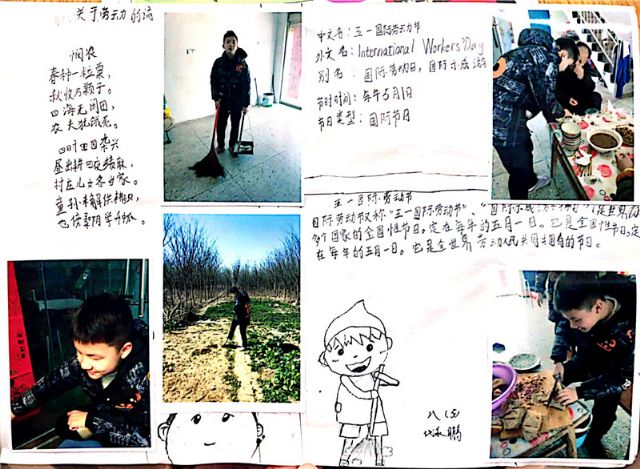 关于劳动的诗
悯农
春种一粒粟,
秋收万颗子。
四海无闲田,
农夫犹饿死。
四时田园杂兴
昼出耕田夜绩麻,
村庄儿女各当家。
童孙未解供耕织,
也傍桑阴学种瓜。
中文名:五一国际劳动节
外文名:International Workers'Day
别名:国际劳动日,国际示威游
节时时间:每年5月1日
节日类型:国际节日
五一国际劳动节
国际劳动节又称“五一国际劳动节”、“国际示威游行日”是世界
多个国家的全国性节日。定在每年的五月一日。它是全国性节日。定
在每年的五月一日。它是全世界劳动人民共同拥有的节日。
八(5)
鹏